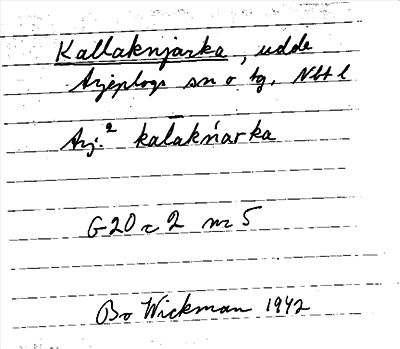 Kallaknjarka, udde
Arjeplogs sn o tg, Nbt l
Arj.² kalākńarka
G20 c 2 nr 5
Bo Wickman 1942